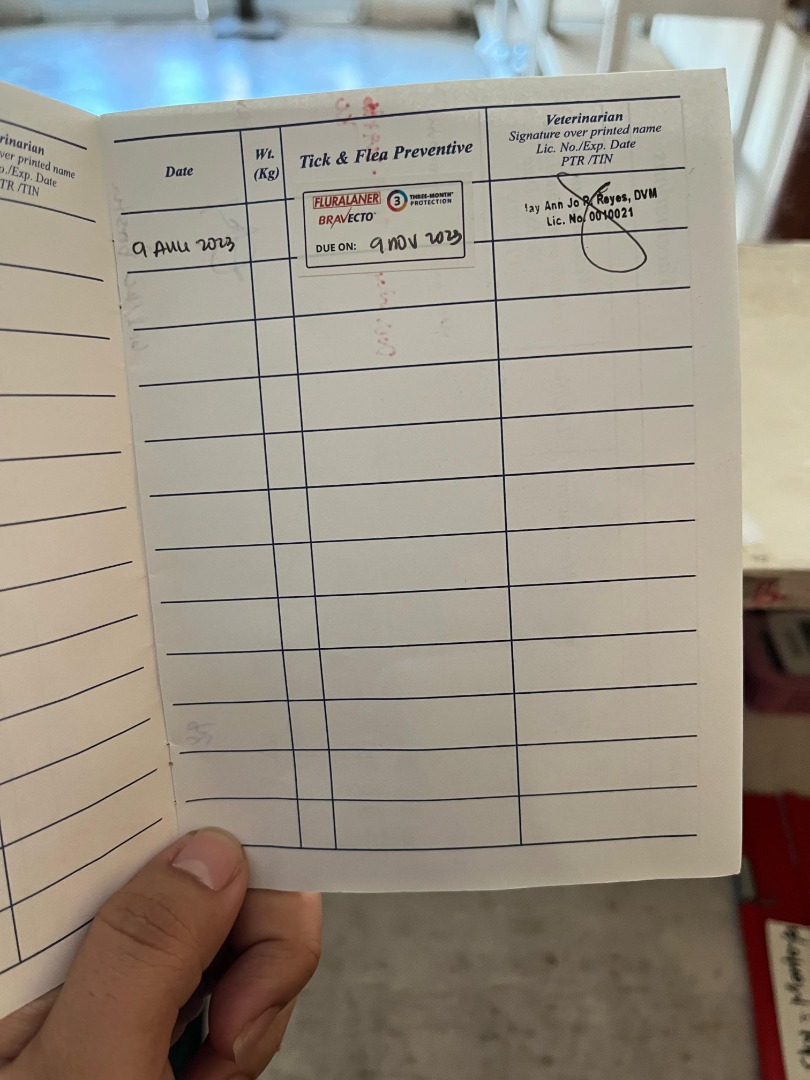 rinarian
ver printed name
o./Exp. Date
TR /TIN
Date
Wt.
(Kg)
Tick & Flea Preventive
Veterinarian
Signature over printed name
Lic. No./Exp. Date
PTR /TIN
9 AUG 2023
FLURALANER
BRAVECTO
3 THREE-MONTH
PROTECTION
DUE ON: 9 NOV 2023
ay Ann Jo Reyes, DVM
Lic. No. 0010021